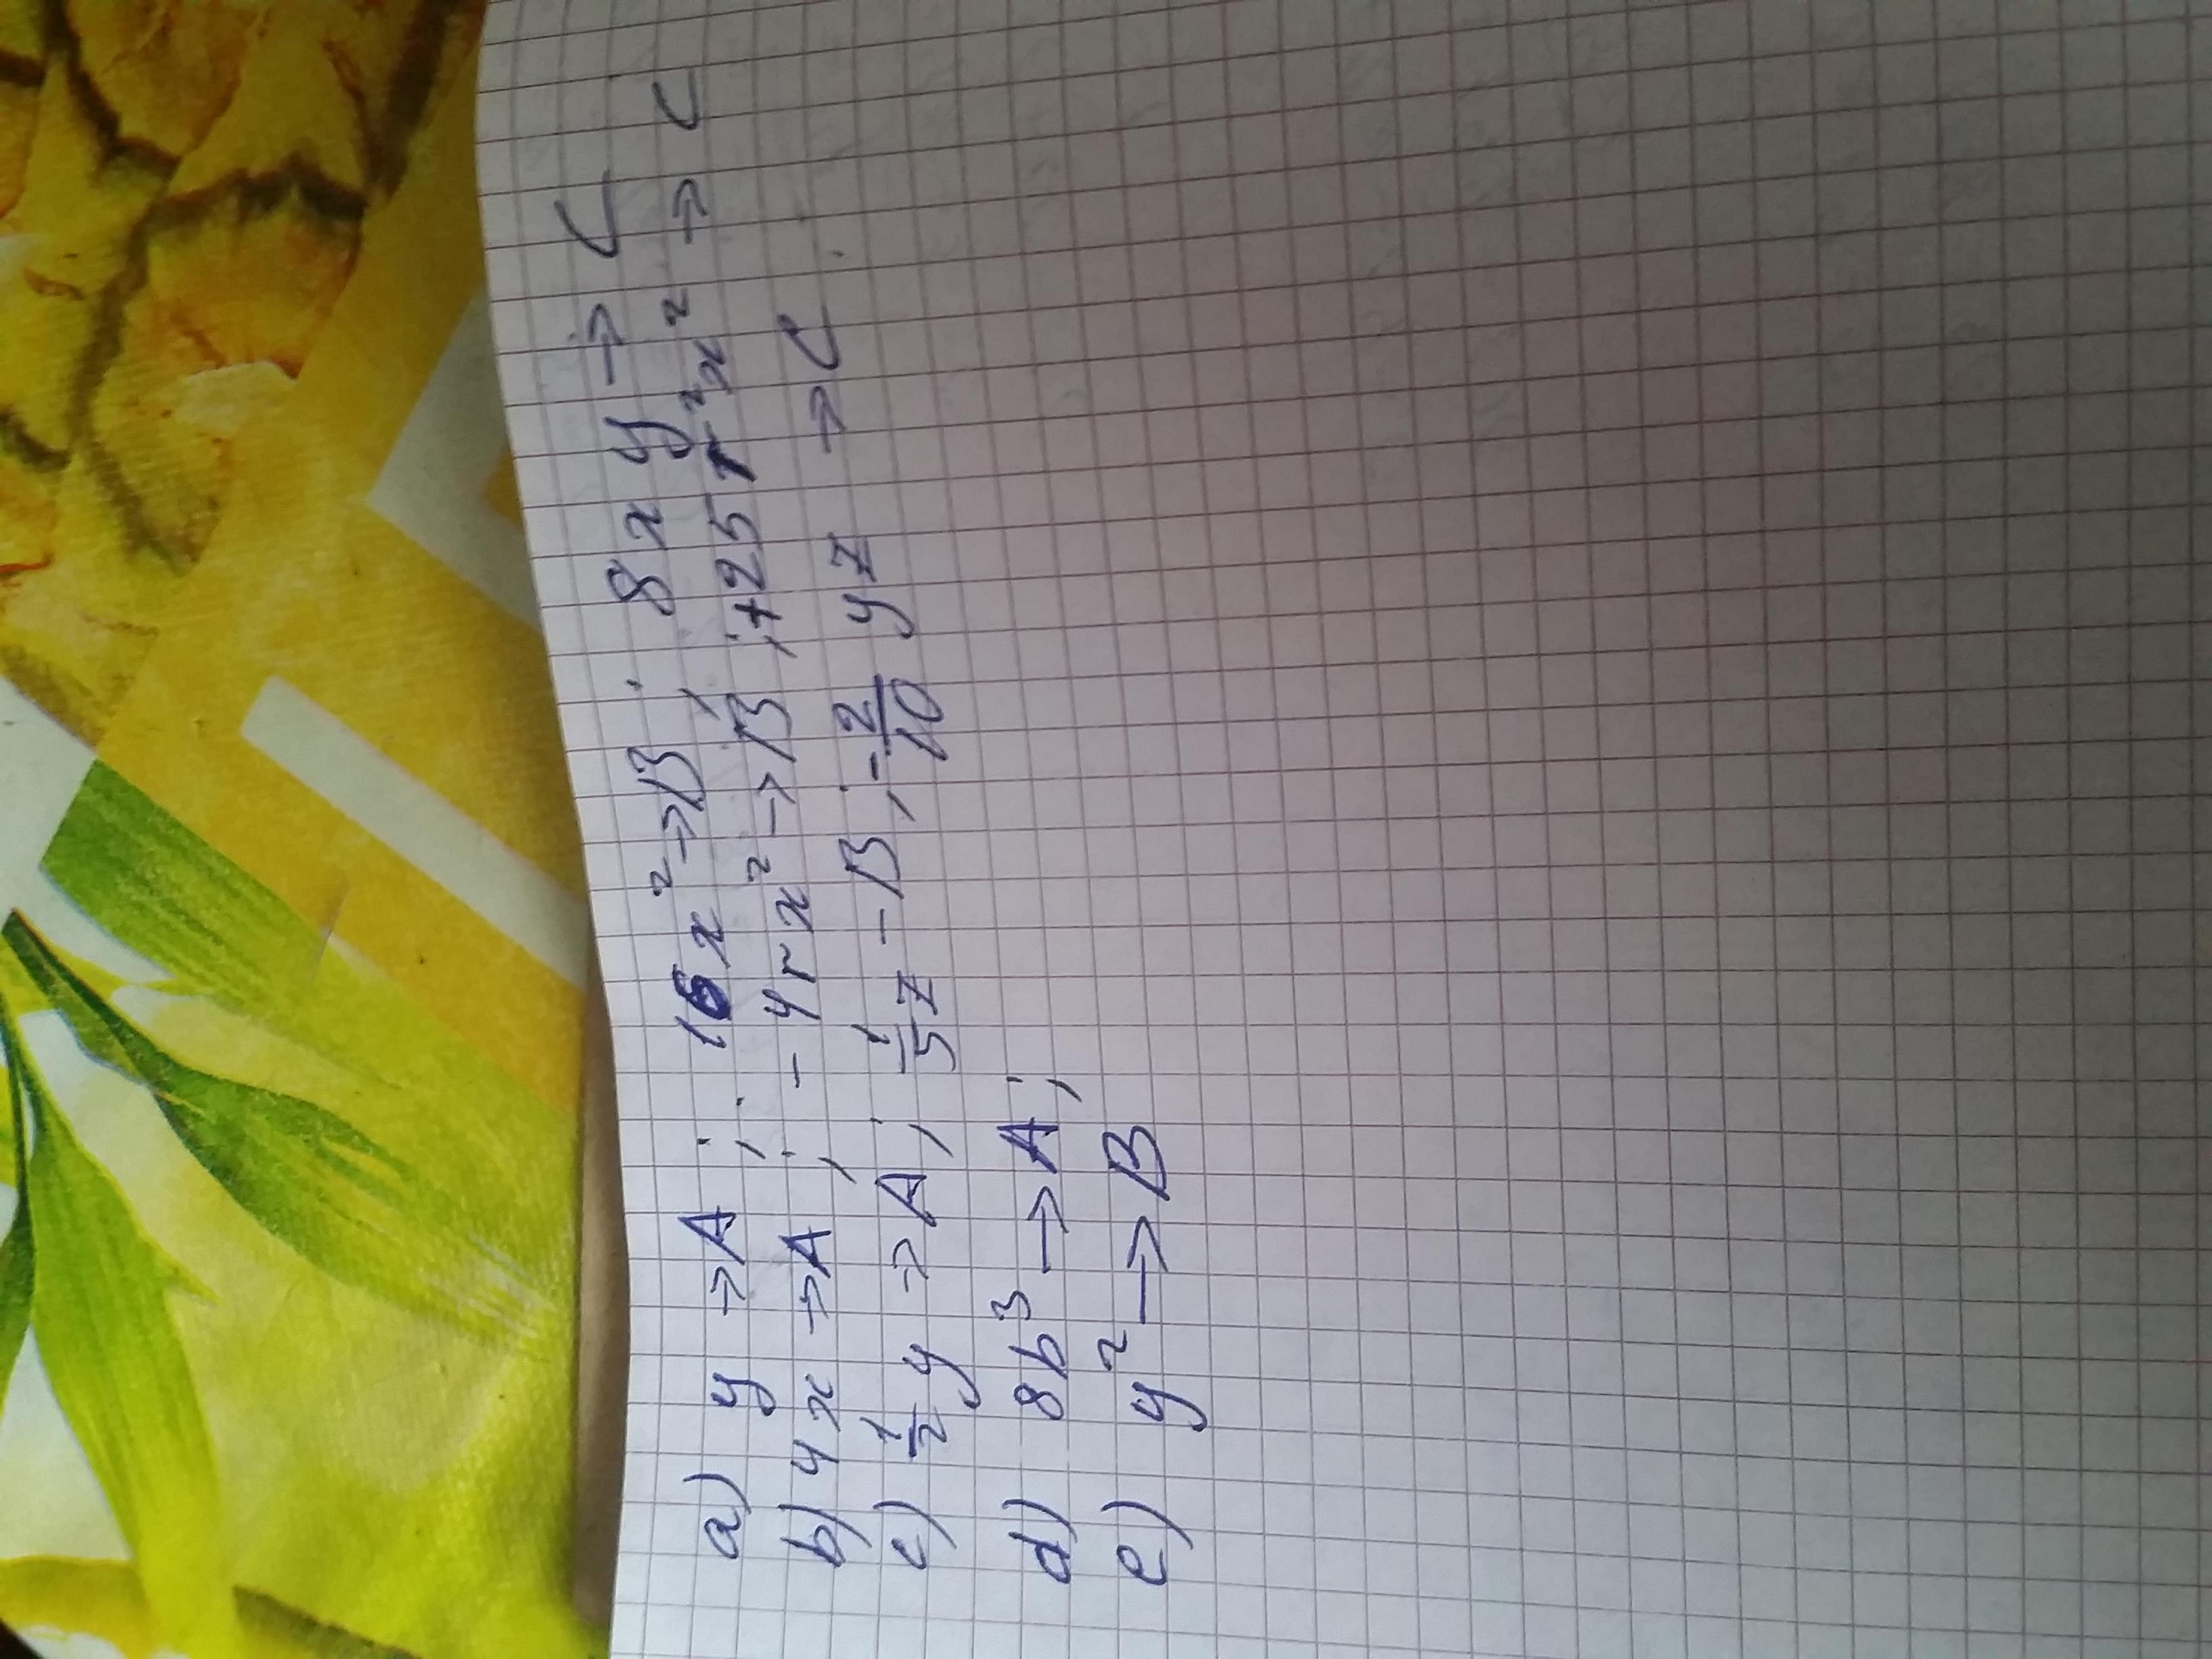 a) y → A ; 16x² → B ; 8xy → C
b) 4x → A ; - 4rx² → B ; + 25r²x² → C
c) 1/2 y → A ; 1/5 z - B ; - 2/10 yz → C
d) 8b³ → A ;
e) y² → B